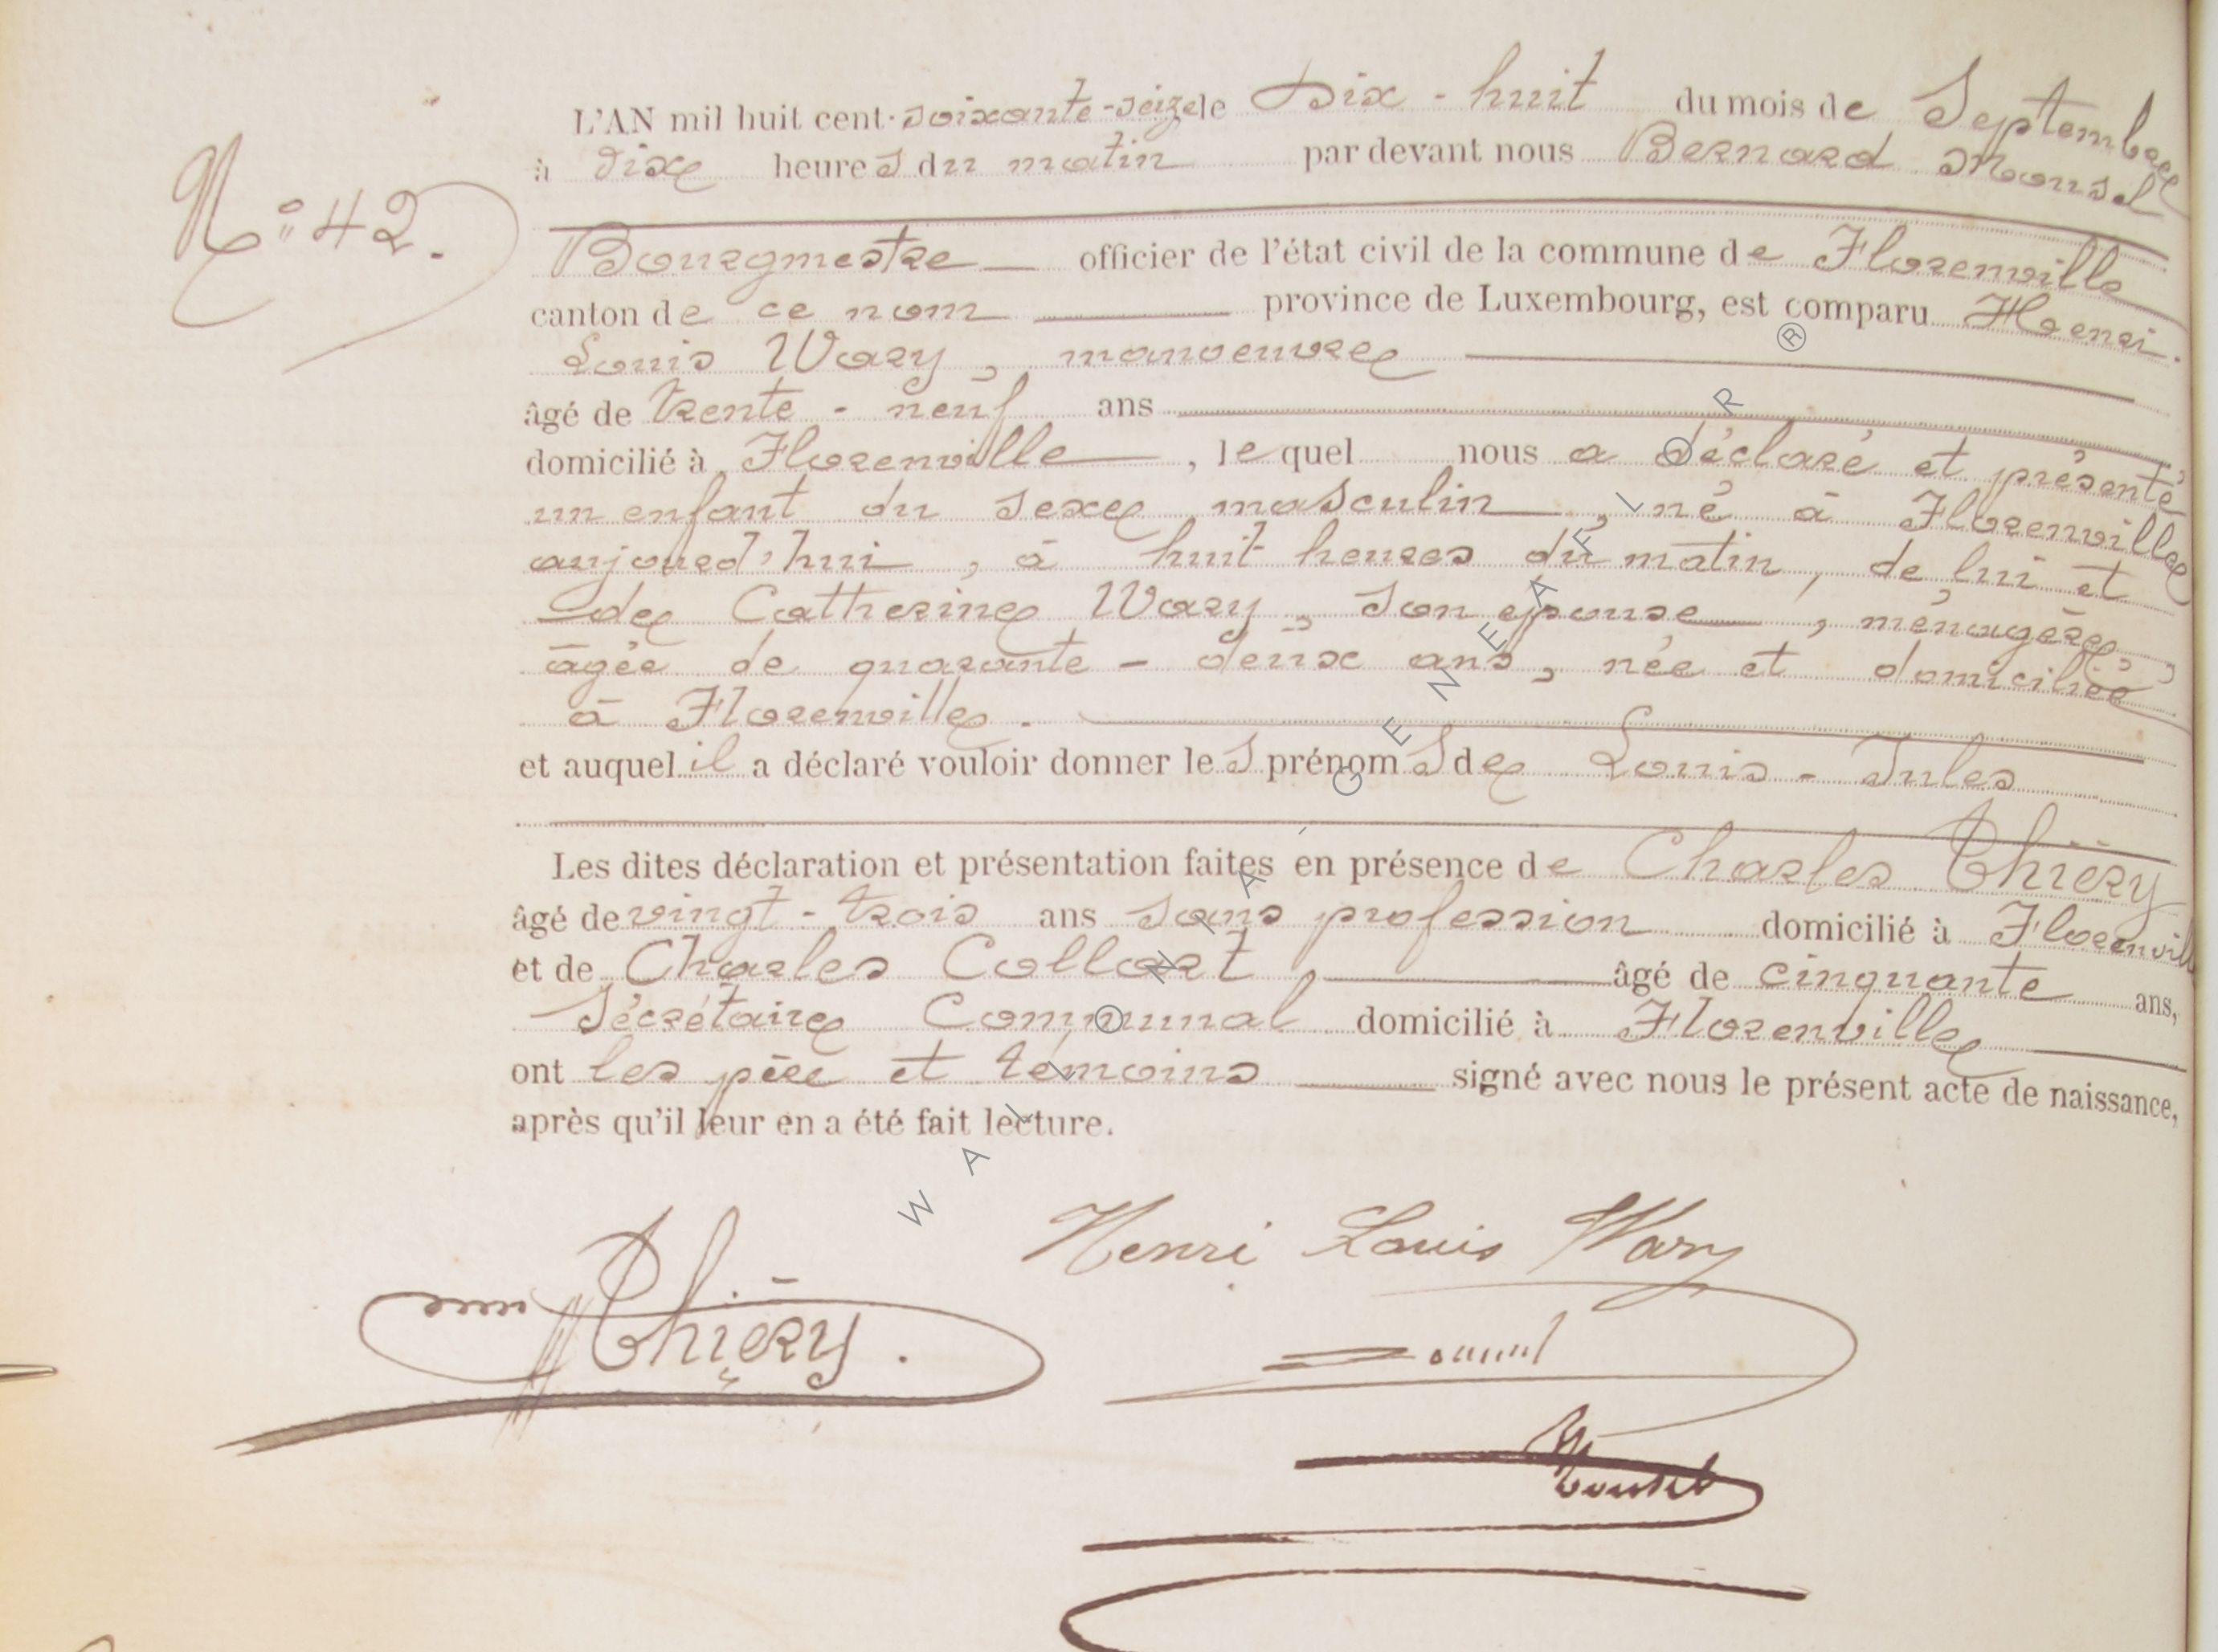 N° 42.
L'AN mil huit cent soixante-seize le Dix-huit du mois de Septembre
à dix heures du matin par devant nous Bernard Mousel
Bourgmestre officier de l'état civil de la commune de Florenville
canton de ce nom province de Luxembourg, est comparu Henri
Louis Wary, manoeuvre
âgé de trente-neuf ans
domicilié à Florenville, lequel nous a déclaré et présenté
un enfant du sexe masculin, né à Florenville
aujourd'hui, à huit heures du matin, de lui et
de Catherine Wary, son epouse, ménagère,
âgée de quarante-deux ans, née et domiciliée
à Florenville.
et auquel il a déclaré vouloir donner les prénoms de Louis-Jules
Les dites déclaration et présentation faites en présence de Charles Thiéry
âgé de vingt-trois ans sans profession domicilié à Florenvill
et de Charles Collart, âgé de cinquante ans,
Sécrétaire Communal domicilié à Florenville
ont les père et témoins signé avec nous le présent acte de naissance,
après qu'il leur en a été fait lecture.
Henri Louis Wary
Thiéry.
Mousel
WALLONIA-GENEAFLOR ®